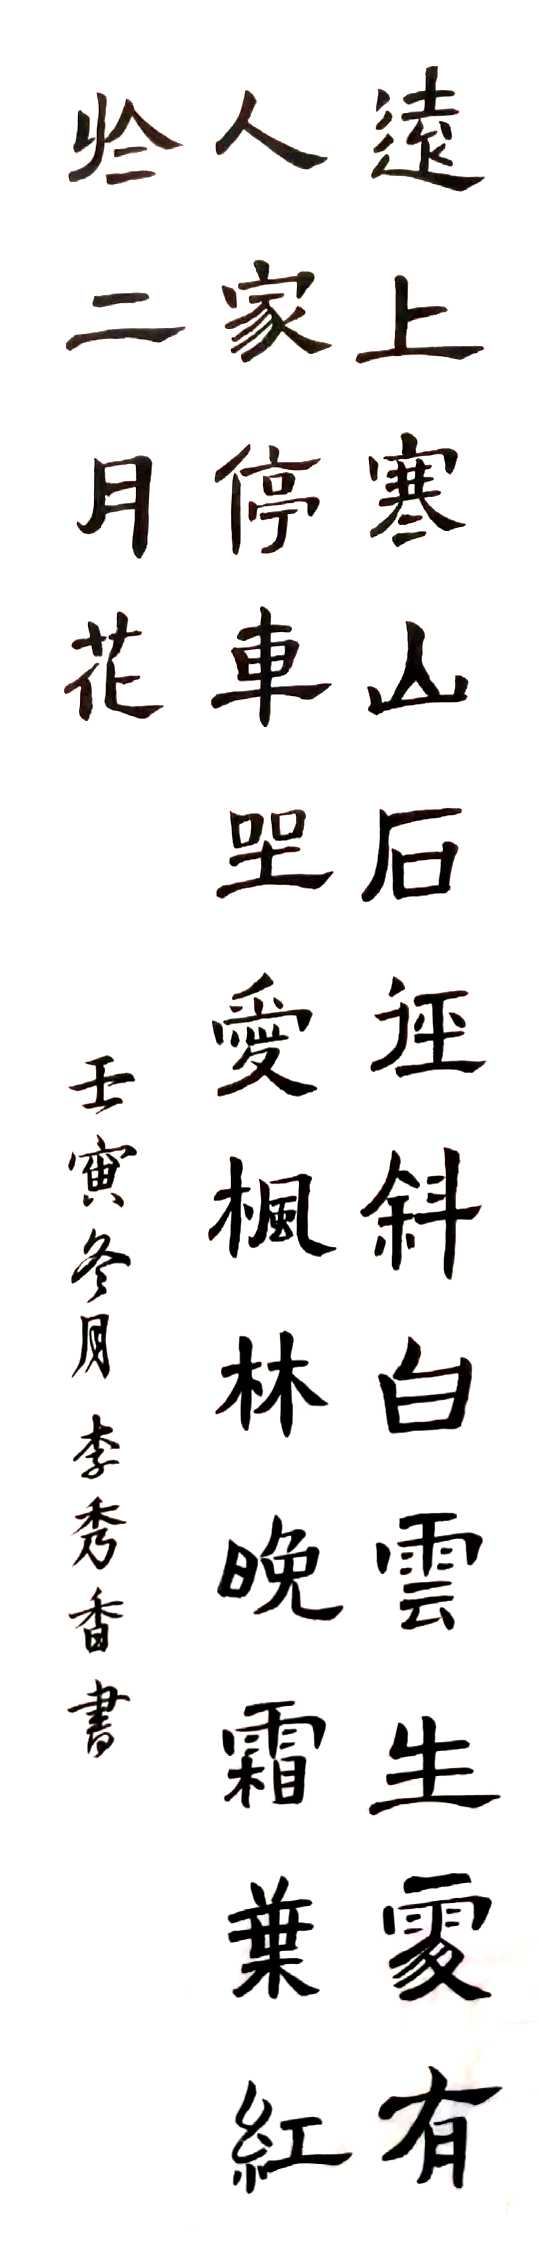 遠上寒山石径斜白雲生處有
人家停車坐愛楓林晚霜葉紅
扵二月花
壬寅冬月李秀香書